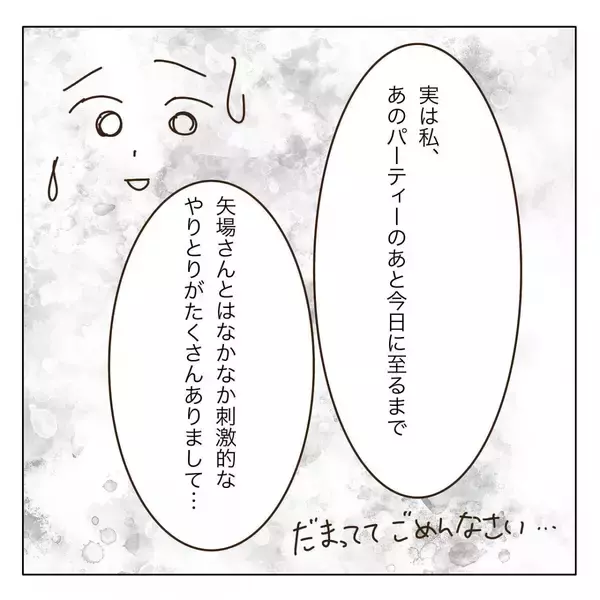 実は私、
あのパーティーのあと今日に至るまで
矢場さんとはなかなか刺激的な
やりとりがたくさんありまして…
だまっててごめんなさい…